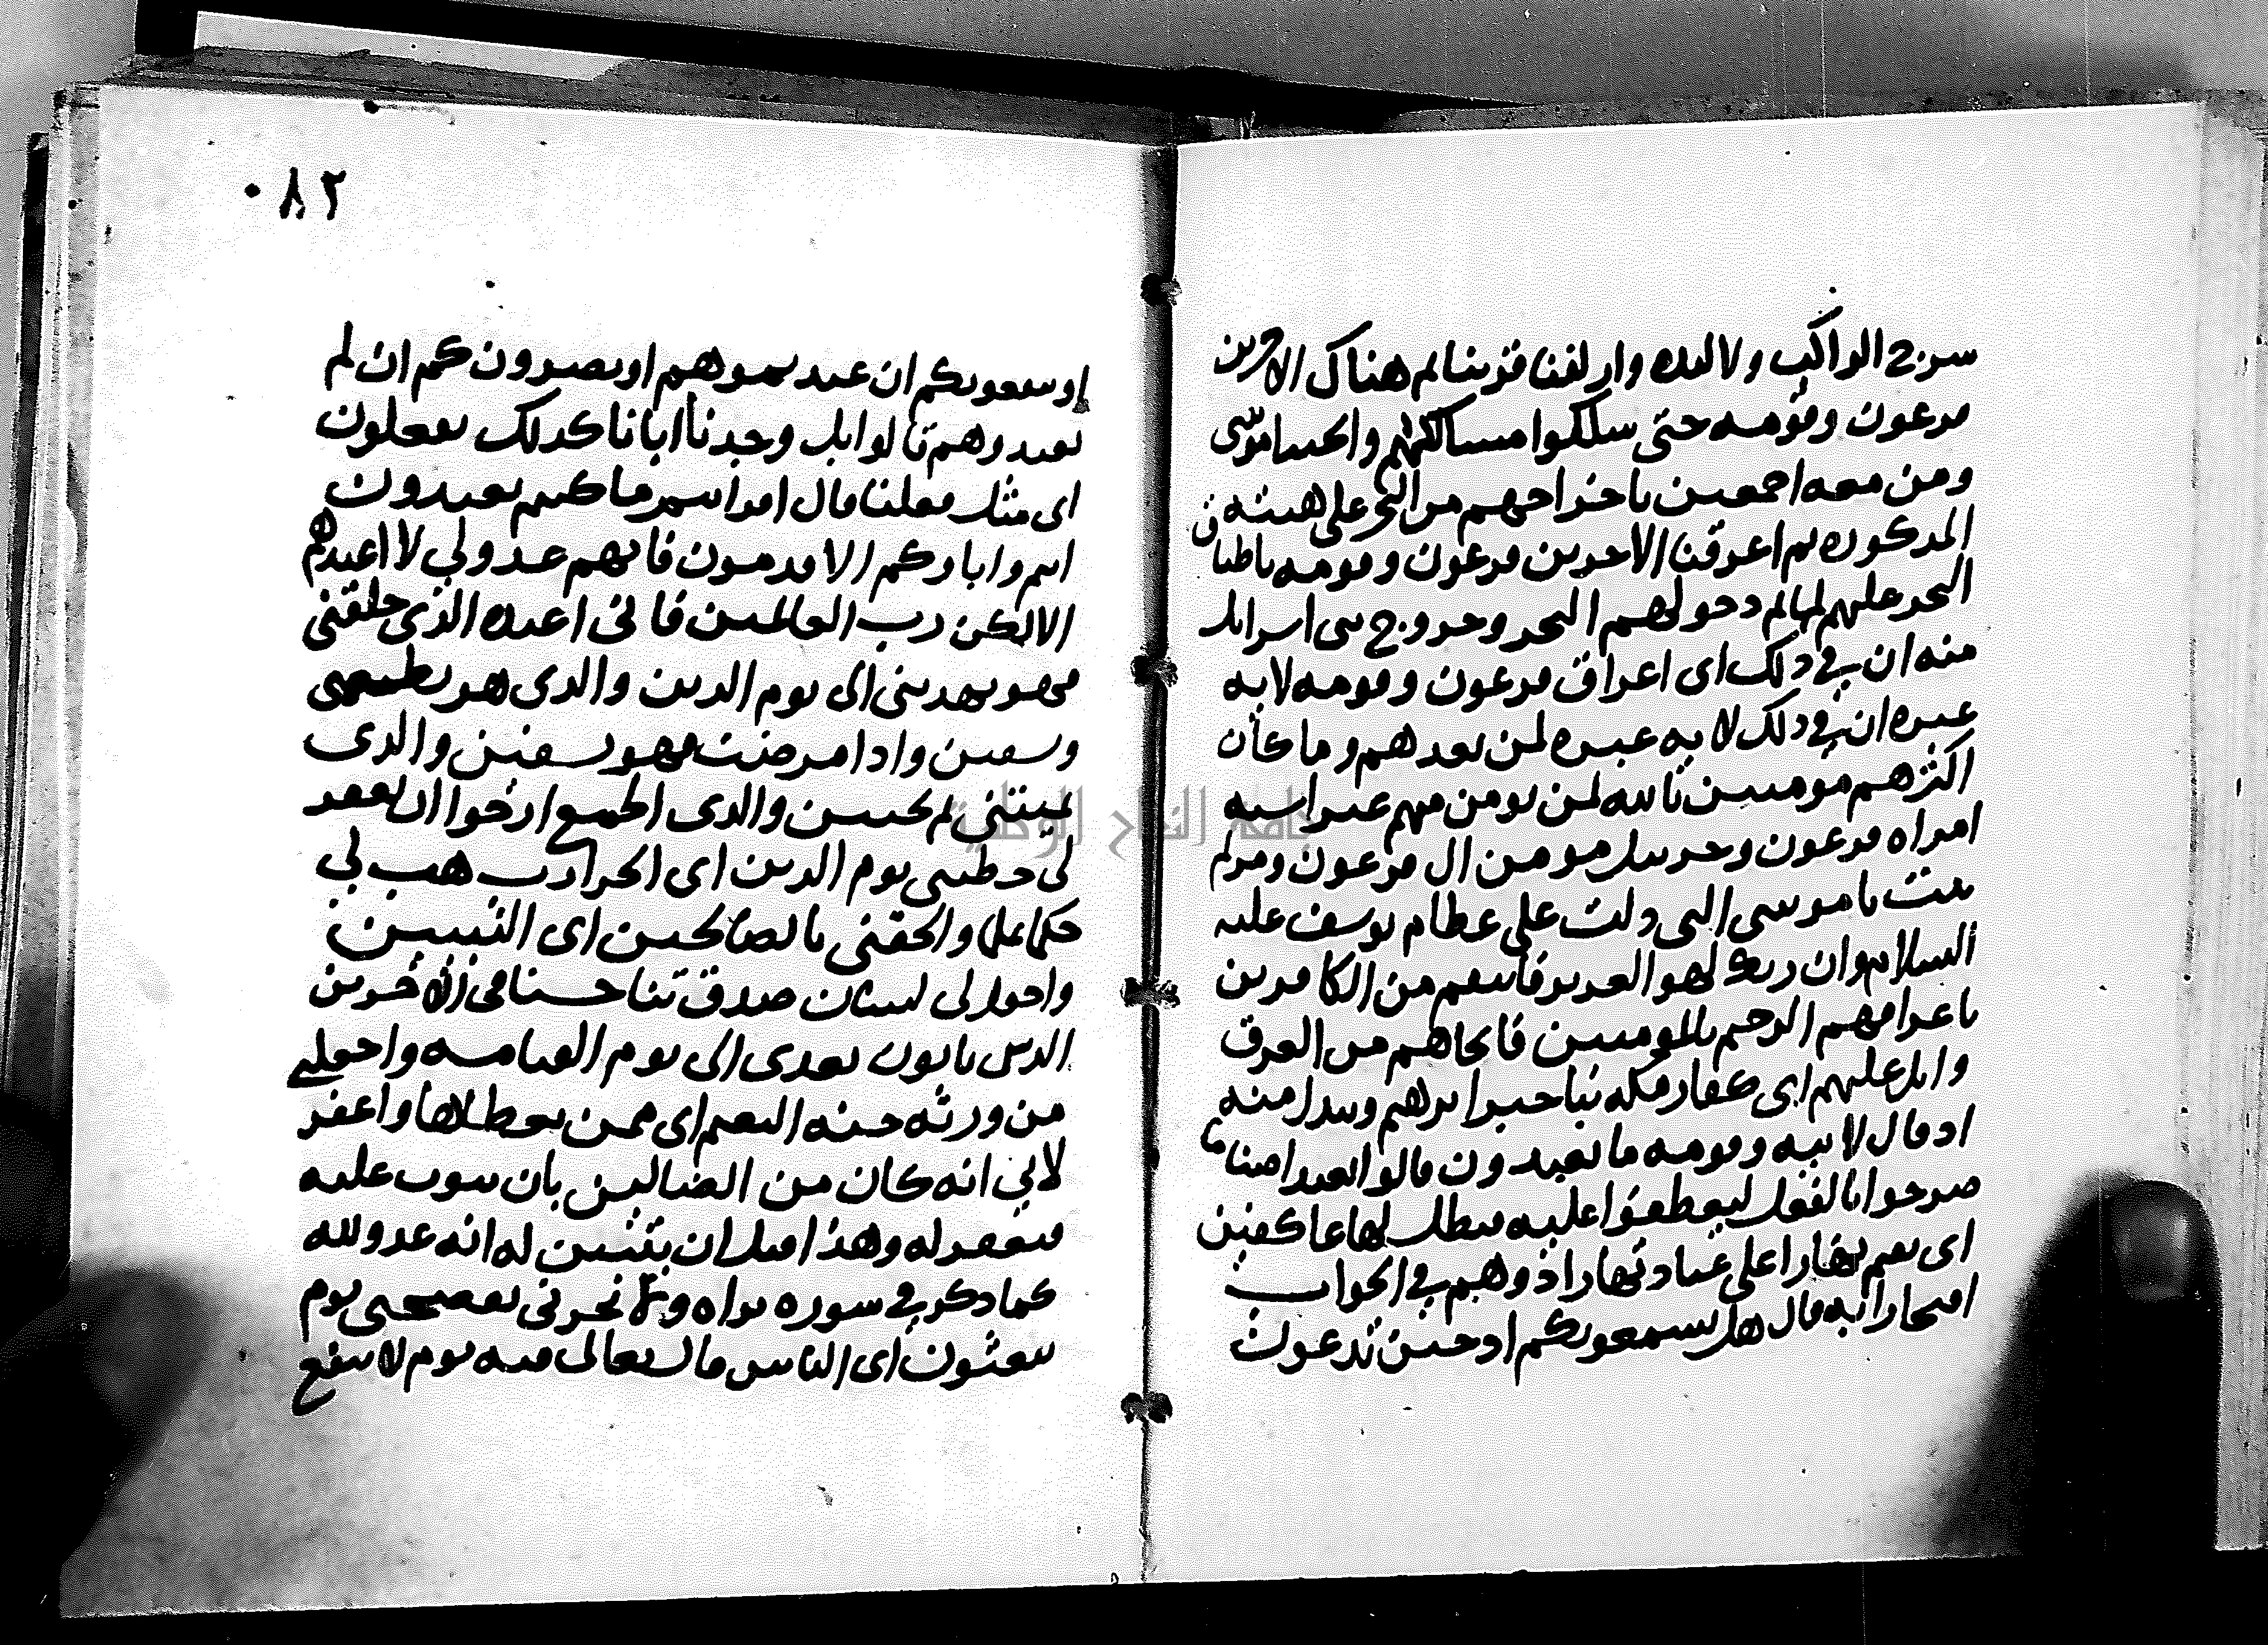 سرج الراكب ولا لبده وازلفنا قربنا ثم هناك الآخرين
فرعون وقومه حتى سلكوا مسالكهم وانجينا موسى
ومن معه اجمعين باخراجهم من البحر على هيئته
المذكوره ثم اغرقنا الاخرين فرعون وقومه باطباق
البحر عليهم لما تم دخولهم البحر وخروج بني اسرايل
منه ان في ذلك اى اغراق فرعون وقومه لايه
عبره ان في ذلك لايه عبره لمن بعدهم وما كان
اكثرهم مومنين بالله لمن يومن منهم غير اسيه
امراه فرعون وحزبيل مومن ال فرعون ومريم
بنت ياموسى التى دلت على عظام يوسف عليه
السلام وان ربك لهو العزيز فانتقم من الكافرين
باغراقهم الرحيم بالمومنين فانجاهم من الغرق
واتل عليهم اى كفار مكه نبا خبر ابرهيم ويبدل منه
اذ قال لابيه وقومه ما تعبدون قالوا نعبد اصناما
صرحوا بالفعل ليعطفوا عليه فنظل لها عاكفين
اى نقيم نهارا على عبادتها زادوهم في الجواب
افتخارا به قال هل يسمعونكم اذ حين تدعون
٠٨٢
او ينفعونكم ان عبدتموهم او يضرون كم ان لم
تعبدوهم قالوا بل وجدنا اباناكذلك يفعلون
اى مثل فعلنا قال افرايتم ما كنتم تعبدون
انتم واباوكم الاقدمون فانهم عدو لي لا اعبدهم
الا لكن رب العالمين فانى اعبده الذى خلقنى
فهو يهدينى الى يوم الدين والذى هو يطعمنى
ويسقين واذا مرضت فهو يشفين والذى
يميتني ثم يحيين والذى اطمع ارجوا ان يغفر
لى خطيتى يوم الدين اى الجزا رب هب لي
حكما علما والحقنى بالصالحين اى النبيين
واجعل لى لسان صدق ثنا حسنا في الآخرين
الذين ياتون بعدى الى يوم القيامه واجعلنى
من ورثه جنه النعيم اى ممن يعطاها واغفر
لابي انه كان من الضالين بان تتوب عليه
فتغفر له وهذا قبل ان يتبين له انه عدو لله
كما ذكر في سوره براه ولا تخزنى تفضحنى يوم
يبعثون اى الناس قال تعالى فيه يوم لا ينفع